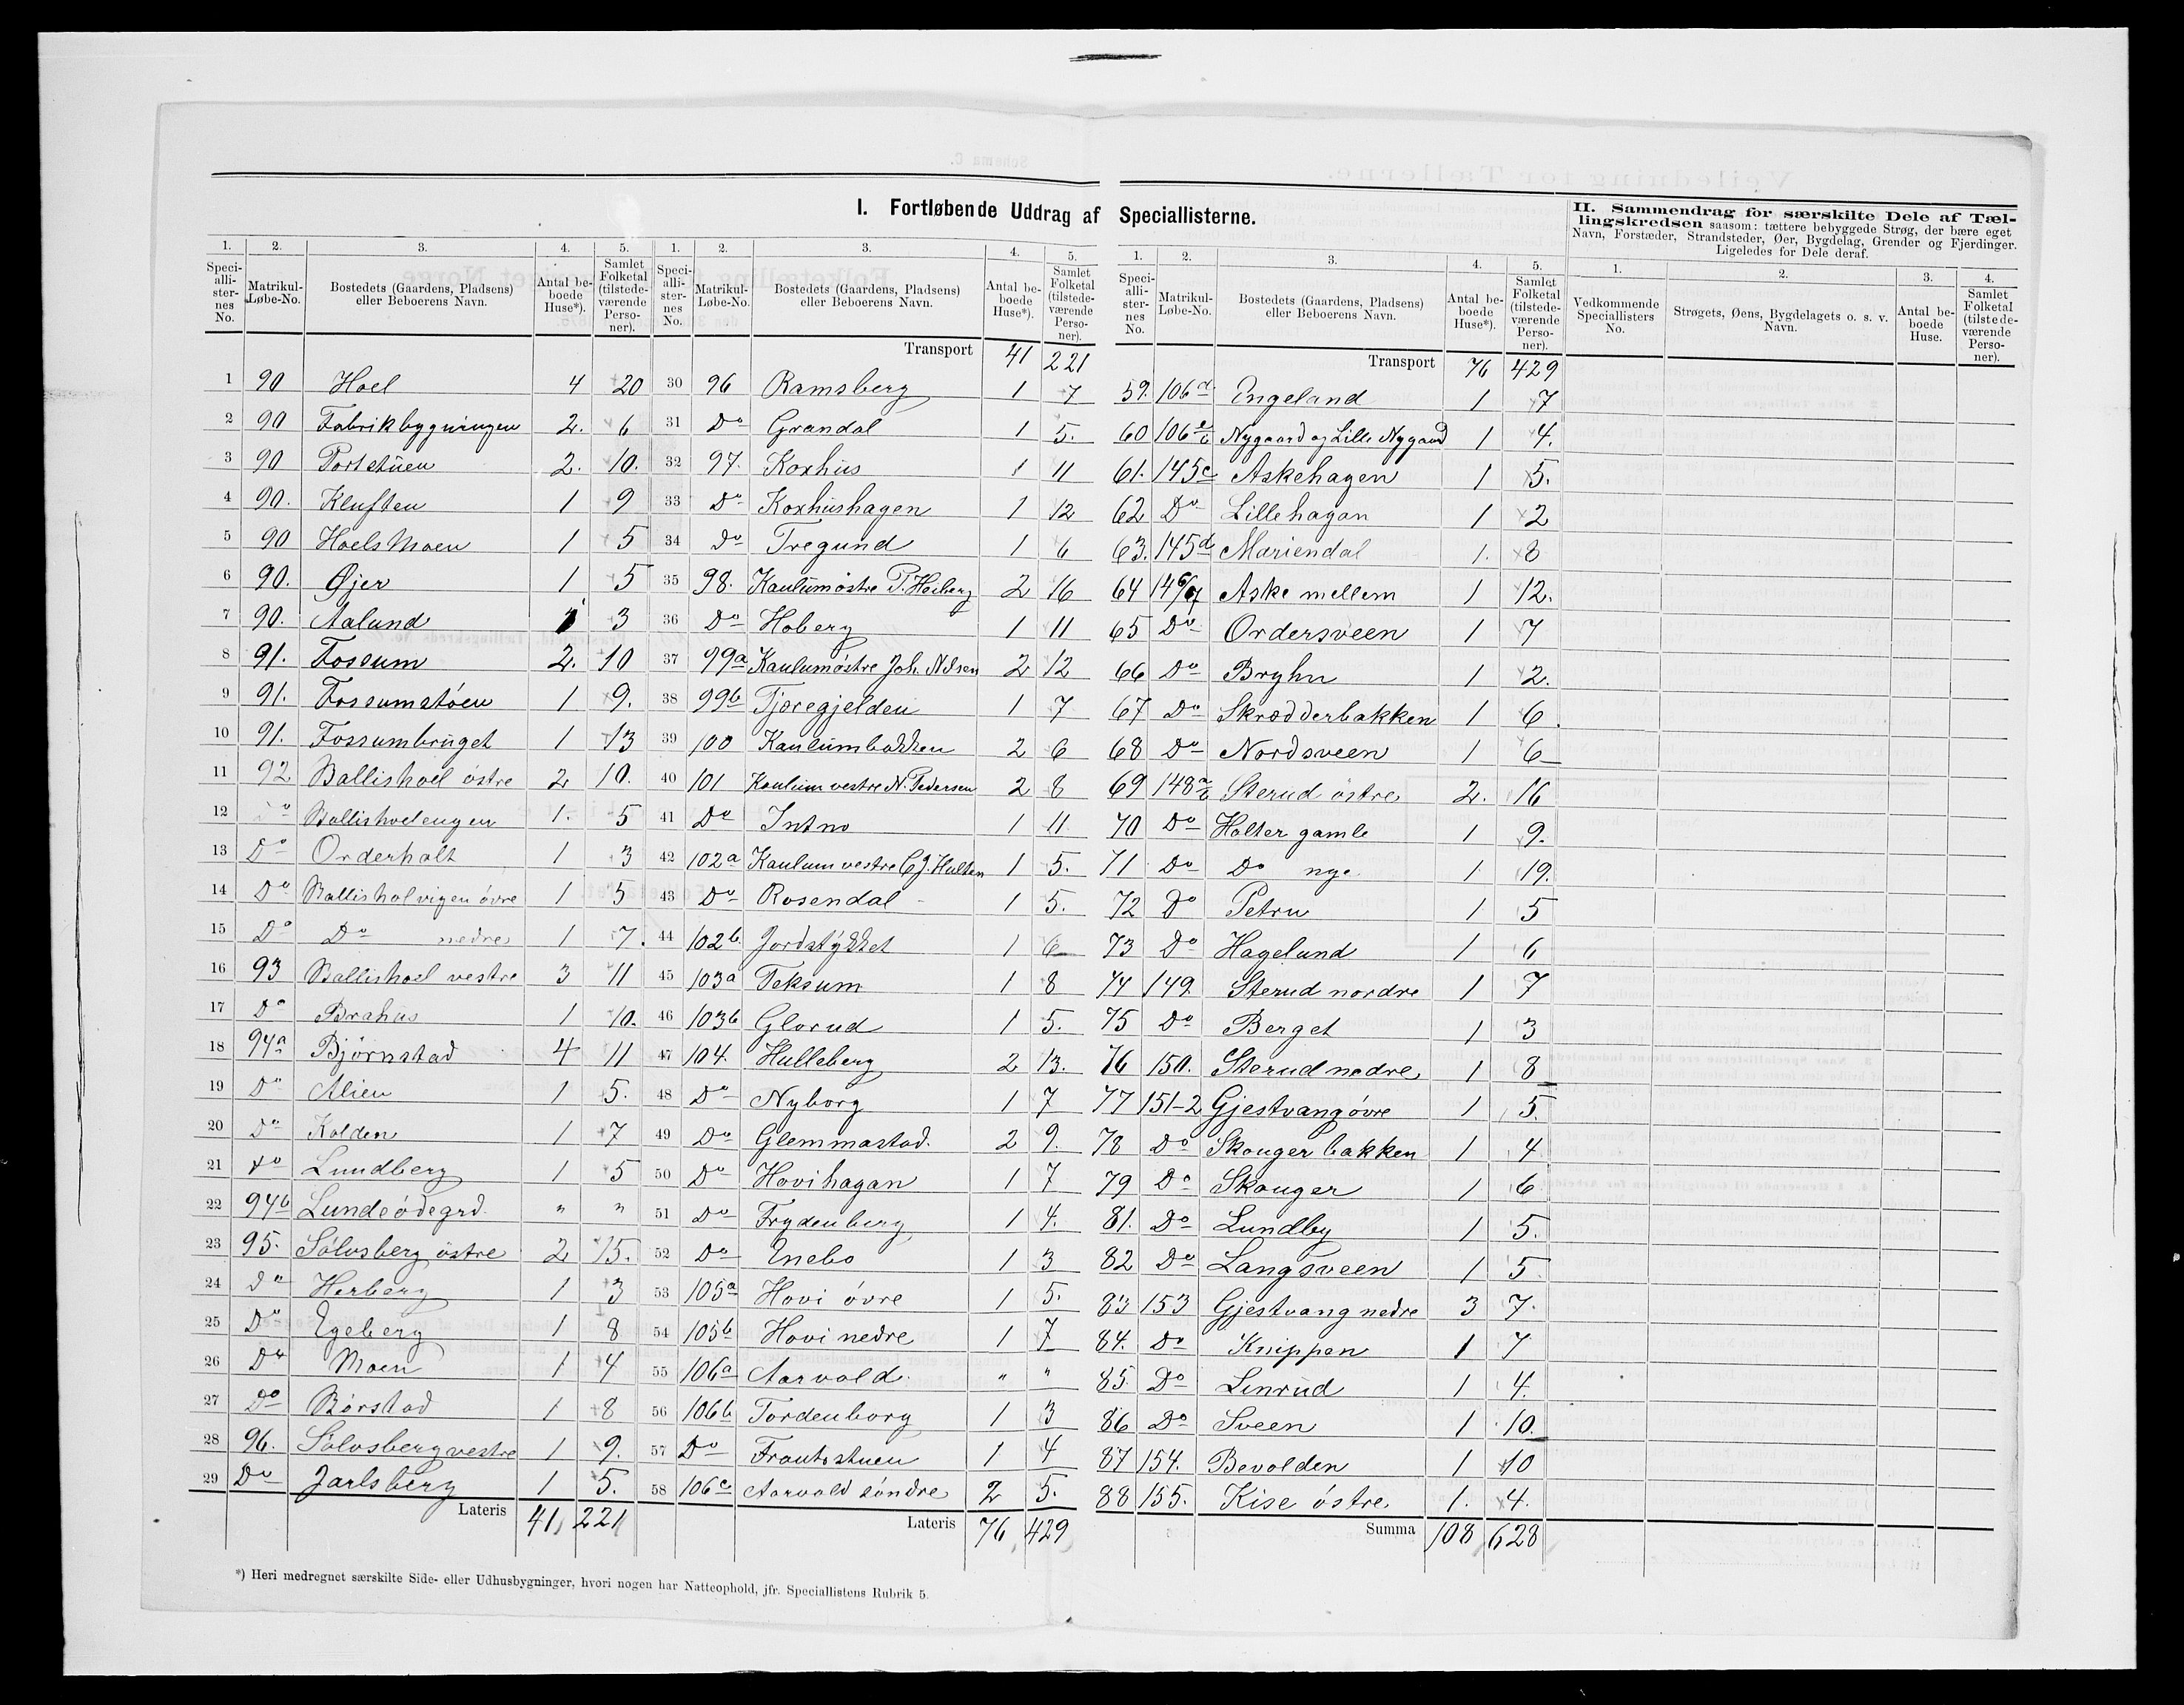 I. Fortløbende Uddrag af Speciallisterne.
1. 2. 3. 4. 5.
Speciallisternes No. Matrikul-Løbe-No. Bostedets (Gaardens, Pladsens) eller Beboerens Navn. Antal beboede Huse*). Samlet Folketal (tilstedeværende Personer).
1 90 Hoel 4 20
2 90 Fabrikbygningen 2. 6
3 90 Portstuen 2. 10.
4 90. Kluften 1 9
5 90 Hoels Moen 1 5
6 90. Øjer 1 5
7 90. Aalund 1 3
8 91. Fossum 2. 10
9 91. Fossumstøen 1 9.
10 91. Fossumbruget 1 13
11 92 Ballishoel östre 2 10.
12 Do Ballishoelengen 1. 5
13 Do Orderholt 1 3
14 Do Ballisholvigen óvre 1 5
15 Do Do nedre 1 7.
16 93 Ballishoel vestre 3 11
17 Do Brahus 1 10.
18 94a Bjørnstad 4 11
19 Do Alien 1 5.
20 Do Kolden 1 7
21 Do Lundberg 1 5
22 94b Lundeödegrd. " "
23 95. Sólvsberg östre 2 15.
24 Do Herberg 1 3
25 Do Egeberg 1 8
26 Do Moen 1 4
27 Do Börstad 1 8
28 96. Sólvsberg vestre 1 9.
29 Do Jarlsberg 1 5.
Lateris 41 221
1. 2. 3. 4. 5.
Speciallisternes No. Matrikul-Løbe-No. Bostedets (Gaardens, Pladsens) eller Beboerens Navn. Antal beboede Huse*). Samlet Folketal (tilstedeværende Personer).
Transport 41 221
30 96 Ramsberg 1 7
31 Do Grandal 1 5.
32 97. Koxhus 1 11
33 Do Koxhushagen 1 12
34 Do Tregund 1 6
35 98. Kaulum östre P. Hoeberg 2 16
36 Do Hoberg 1 11
37 99a Kaulum östre Joh. Nilsen 2 12
38 99b Tjæregjelden 1 7
39 100 Kaulumbakken 2 6
40 101 Kaulum vestre N. Pedersen 2 8
41 Do Intno 1 11
42 102a Kaulum vestre C.J. Hulten 1 5.
43 Do Rosendal 1 5.
44 102b. Jordstykket 1 6
45 103a Teksum 1 8
46 103b Glorud 1 5.
47 104. Hulleberg 2 13.
48 Do Nyborg 1 7
49 Do Glemmastad. 2 9.
50 Do Hovihagan 1 7
51 Do Frydenberg 1 4.
52 Do Enebo 1 3
53 105a Hovi óvre 1 5.
54 105b Hovi nedre 1 7
55 106a Aarvold. " "
56 106b Tordenborg 1 3
57 Do Frontsstuen 1 4
58 106c Aarvold söndre 2 5.
Lateris 76 429
1. 2. 3. 4. 5.
Speciallisternes No. Matrikul-Løbe-No. Bostedets (Gaardens, Pladsens) eller Beboerens Navn. Antal beboede Huse*). Samlet Folketal (tilstedeværende Personer).
Transport 76 429
59. 106d Engeland 1 7
60 106 Nygaard og Lille Nygaard 1 4.
61. 145c Askehagen 1 5.
62 Do Lillehagan 1 2
63. 145d Mariendal 1. 8
64 146/67 Aske mellem 1 12.
65 Do Ordersveen 1 7
66 Do Bryhn 1 2.
67 Do Skrædderbakken 1 6.
68 Do Nordsveen 1 6
69 148 Sterud östre 2. 16
70 Do Holter gamle 1 9.
71 Do Do nye 1 19.
72 Do Petru 1 5
73 Do Hagelund 1 6
74 149. Sterud nordre 1 7
75 Do Berget 1 3
76 150. Sterud nedre 1 8
77 151-2 Gjestvang óvre 1 5.
78 Do Skougerbakken 1 4
79 Do Skouger 1 6
81. Do Lundby 1 5.
82 Do Langsveen 1 5
83 153 Gjestvang nedre 3 7.
84. Do Knippen 1 7
85. Do Linrud 1 4.
86 Do Sveen 1 10.
87 154. Bevolden 1 10
88 155. Kise östre. 1. 4.
Summa 108 628
II. Sammendrag for særskilte Dele af Tællingskredsen saasom: tættere bebyggede Strøg, der bære eget Navn, Forstæder, Strandsteder, Øer, Bygdelag, Grender og Fjerdinger. Ligeledes for Dele deraf.
1. 2. 3. 4.
Vedkommende Speciallisters No. Strøgets, Øens, Bygdelagets o. s. v. Navn. Antal beboede Huse. Samlet Folketal (tilstedeværende Personer).
*) Heri medregnet særskilte Side- eller Udhusbygninger, hvori nogen har Natteophold, jfr. Speciallistens Rubrik 5.